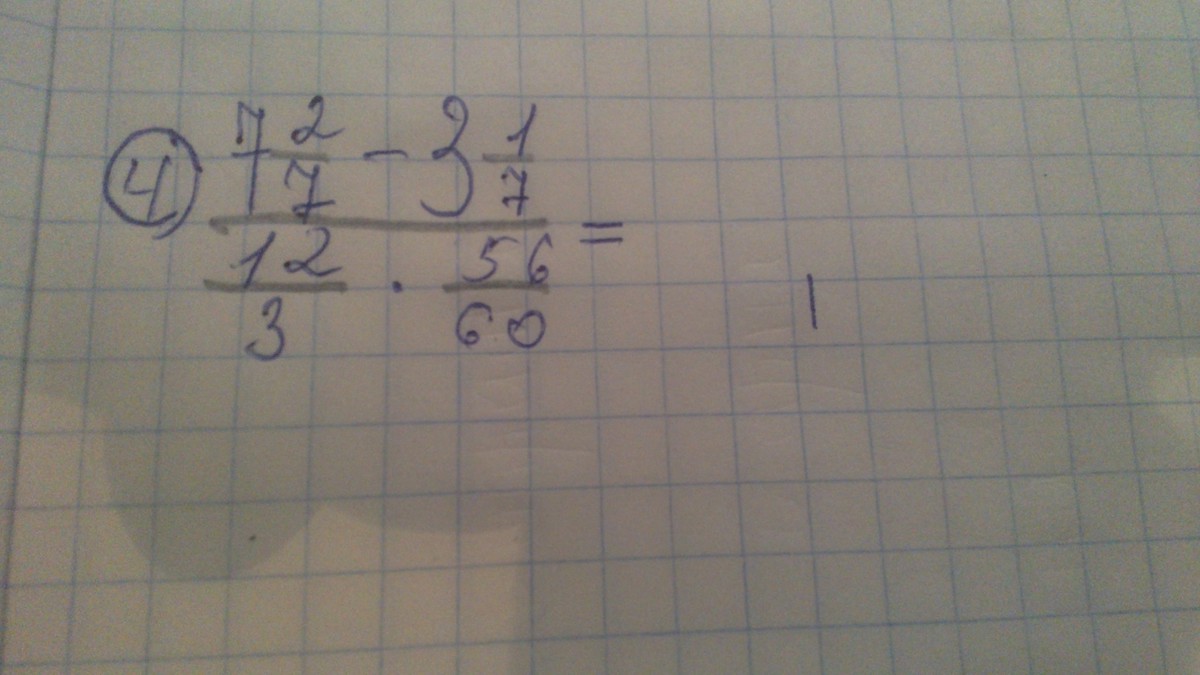 ④ 7 2/7 - 3 1/7
12/3 · 56/60 =